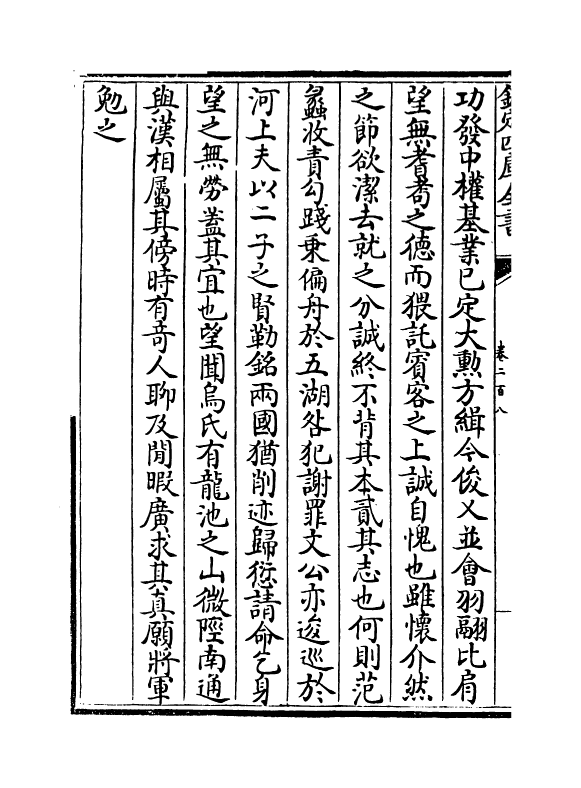 欽定四庫全書
卷二百八
功發中權基業已定大勲方緝今俊乂並會羽翮比肩
望無耆耇之德而猥託賓客之上誠自愧也雖懷介然
之節欲潔去就之分誠終不背其本貳其志也何則范
蠡收責勾踐乗偏舟於五湖咎犯謝罪文公亦逡巡於
河上夫以二子之賢勒銘兩國猶削迹歸愆請命乞身
望之無勞蓋其宜也望聞烏氏有龍池之山微陘南通
與漢相屬其傍時有竒人聊及閒暇廣求其真願將軍
勉之